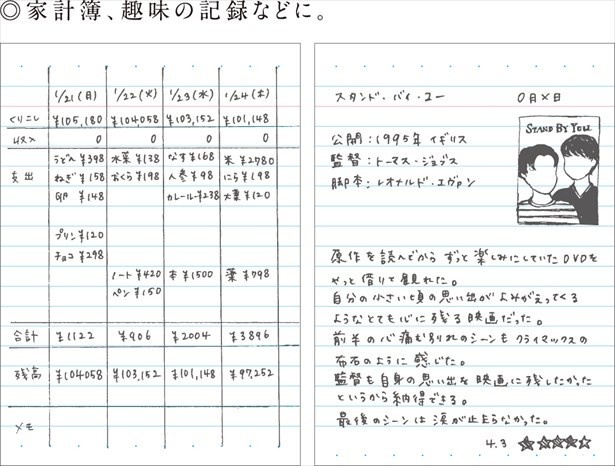 ◎家計簿、趣味の記録などに。
1/21(月) 1/22(火) 1/23(水) 1/24(木)
くりこし ¥105,180 ¥104058 ¥103,152 ¥101,148
収入 0 0 0 0
うどん ¥398 水菜 ¥138 なす ¥168 米 ¥2780
支出 ねぎ ¥158 おくら ¥198 人参 ¥98 にら ¥198
卵 ¥148 カレールー ¥238 大葉 ¥120
プリン ¥120
チョコ ¥298
ノート ¥420 本 ¥1500 薬 ¥798
ペン ¥150
合計 ¥1122 ¥906 ¥2004 ¥3896
残高 ¥104058 ¥103,152 ¥101,148 ¥97,252
メモ
スタンド・バイ・ユー 〇月×日
STAND BY YOU
公開:1995年 イギリス
監督:トーマス・ジョブス
脚本:レオナルド・エヴァン
原作を読んでから ずっと 楽しみにしていたDVDを
やっと借りて観れた。
自分の小さい頃の思い出がよみがえってくる
ようなとても心に残る映画だった。
前半の心痛む別れのシーンも クライマックスの
布石のように感じた。
監督も自身の思い出を映画に残したかった
というから納得できる。
最後のシーンは涙が止まらなかった。
4.3 ★★★★☆